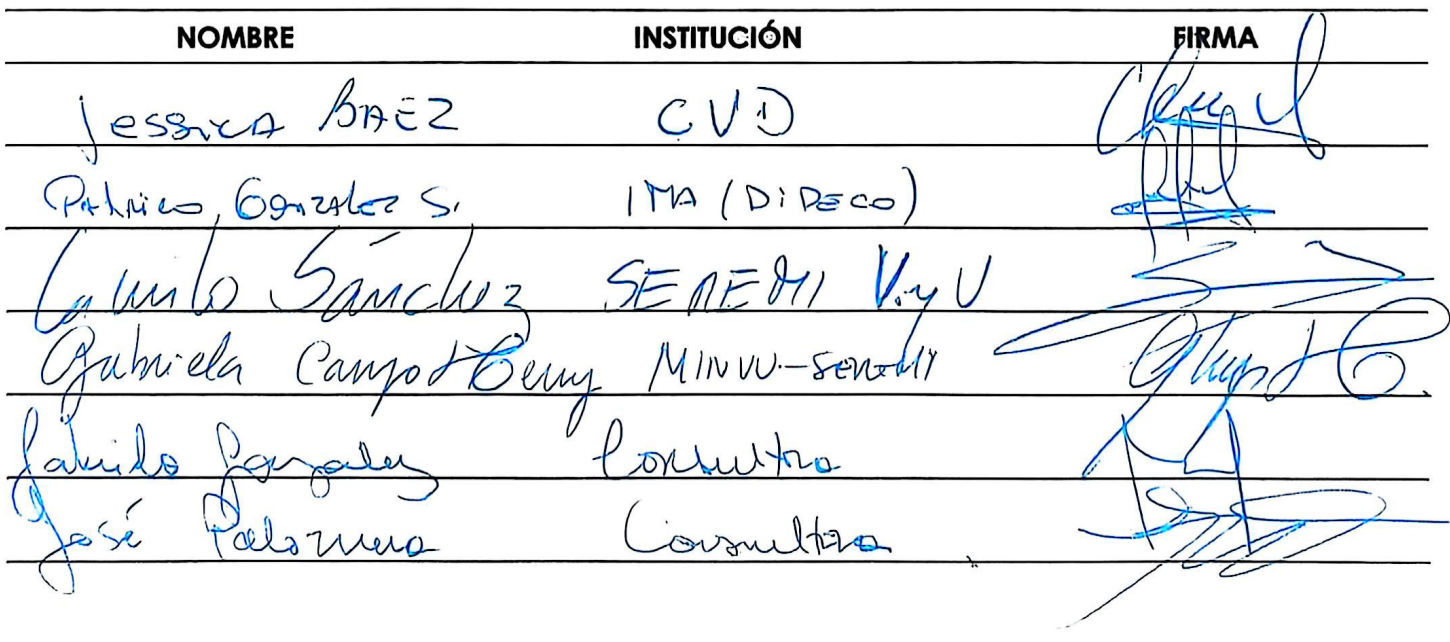 NOMBRE INSTITUCIÓN FIRMA
Jessica BAEZ CVD
Patricio González S. IMA (DIDECO)
Camilo Sánchez SEREMI V. y U
Gabriela Campo MINVU-SEREMI
González Consultora
José Palomera Consultora